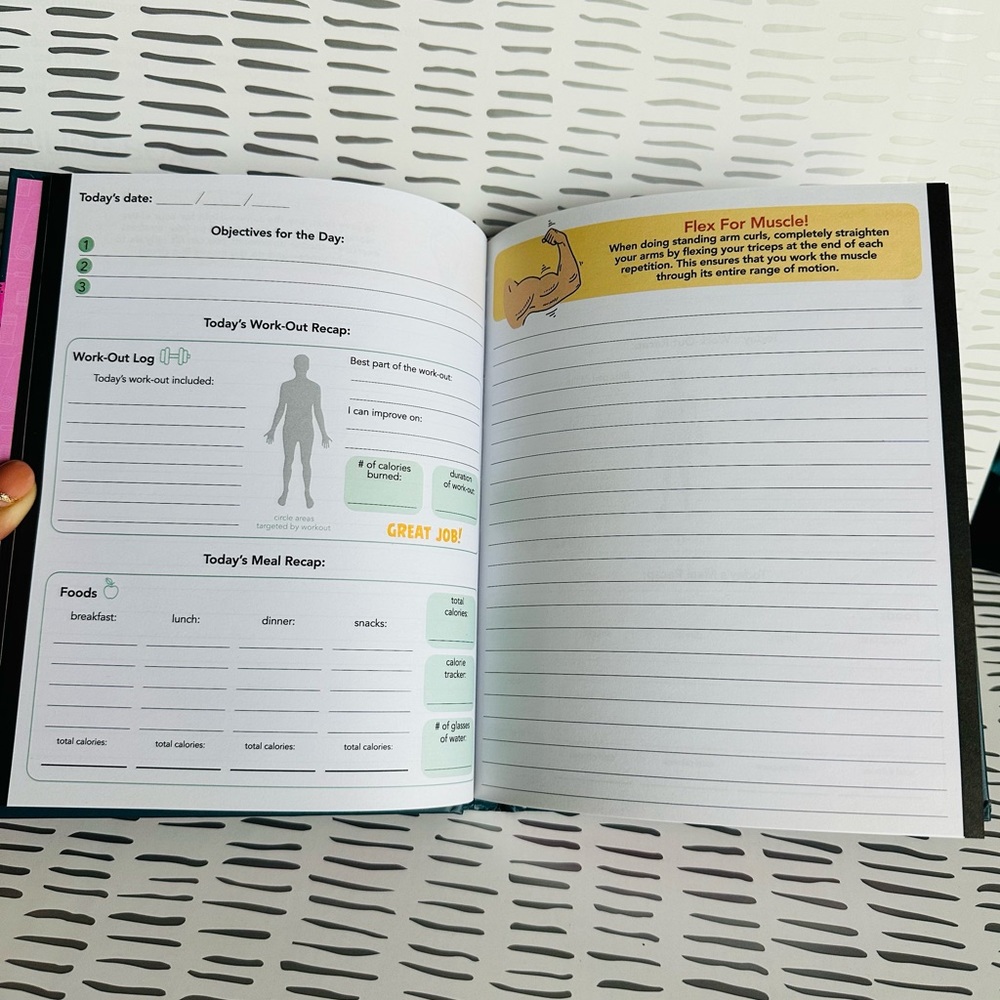 Today's date: ____/____/____
Objectives for the Day:
1
2
3
Today's Work-Out Recap:
Work-Out Log
Today's work-out included:
circle areas
targeted by workout
Best part of the work-out:
I can improve on:
# of calories
burned:
duration
of work-out:
GREAT JOB!
Today's Meal Recap:
Foods
breakfast:
lunch:
dinner:
snacks:
total calories:
total calories:
total calories:
total calories:
total
calories:
calorie
tracker:
# of glasses
of water:
Flex For Muscle!
When doing standing arm curls, completely straighten
your arms by flexing your triceps at the end of each
repetition. This ensures that you work the muscle
through its entire range of motion.